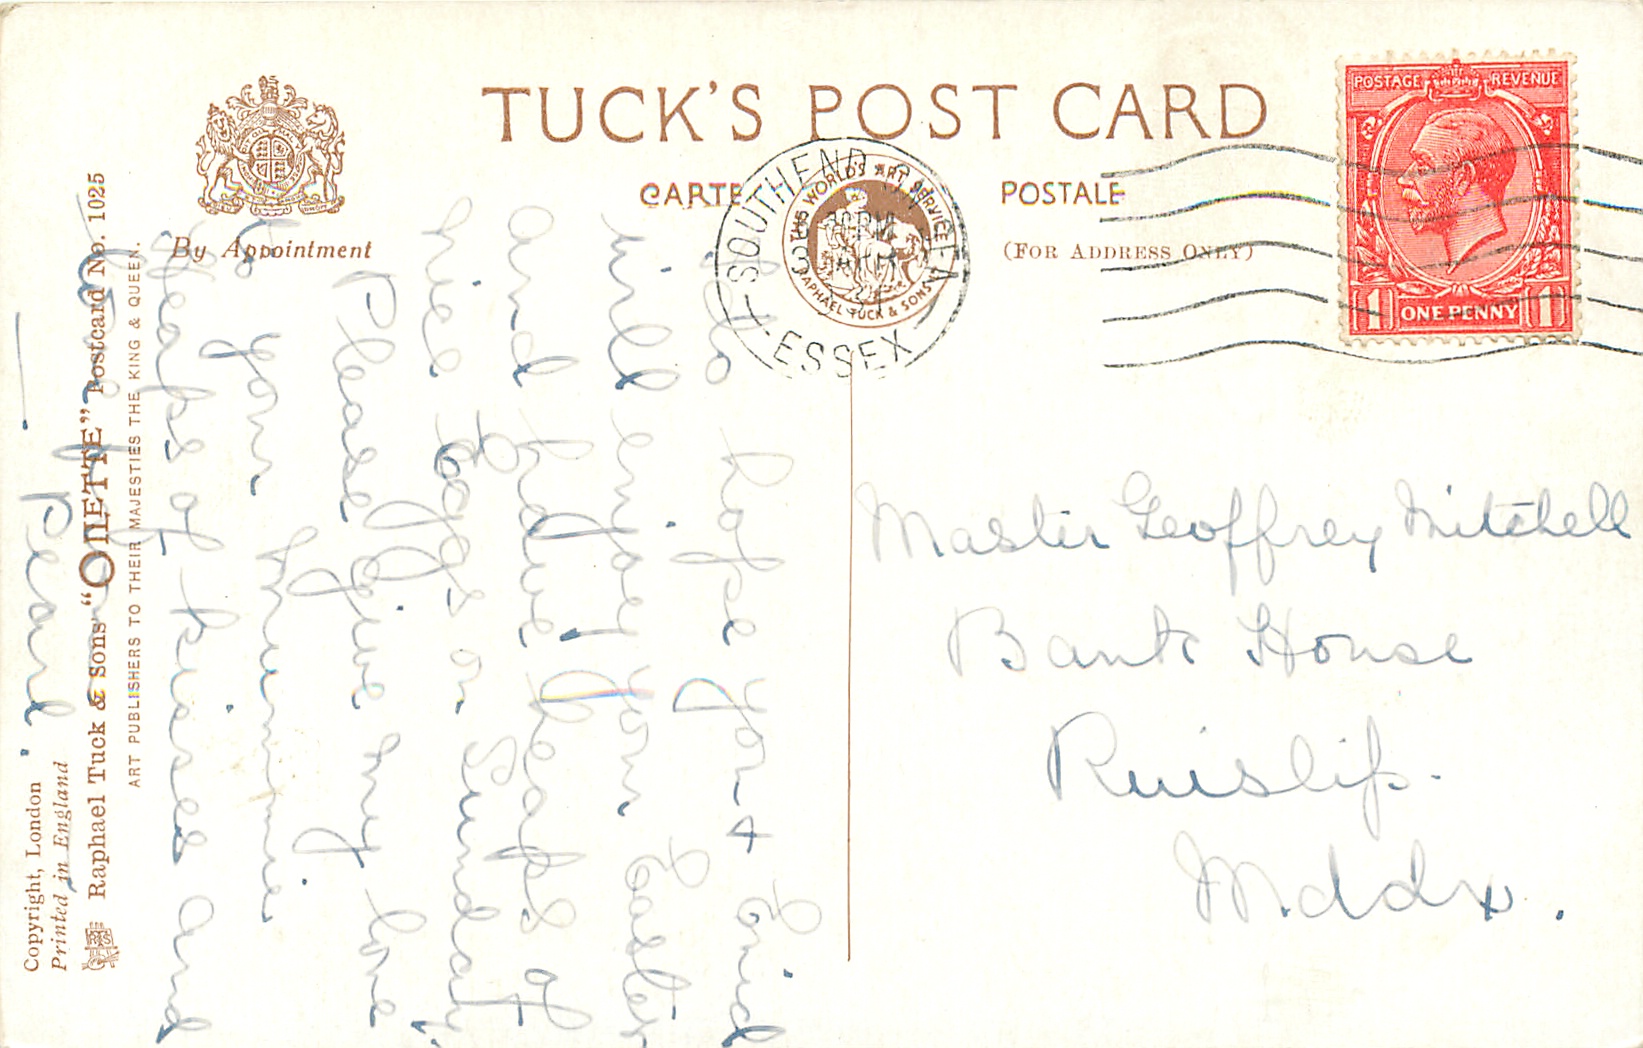 TUCK'S POST CARD
CARTE POSTALE
By Appointment
(FOR ADDRESS ONLY)
POSTAGE REVENUE
1 ONE PENNY 1
SOUTHEND-ON-SEA
ESSEX
THE WORLD'S ART SERVICE
RAPHAEL TUCK & SONS
Master Geoffrey Mitchell
Bank House
Ruislip.
Mddx.
hope you & Enid
will enjoy your Easter
and have heaps of
nice eggs on Sunday.
Please give my love
to your Mummie
Heaps of kisses and
love from
— Pearl.
ART PUBLISHERS TO THEIR MAJESTIES THE KING & QUEEN.
Raphael Tuck & Sons "OILETTE" Postcard No. 1025
Printed in England
Copyright, London